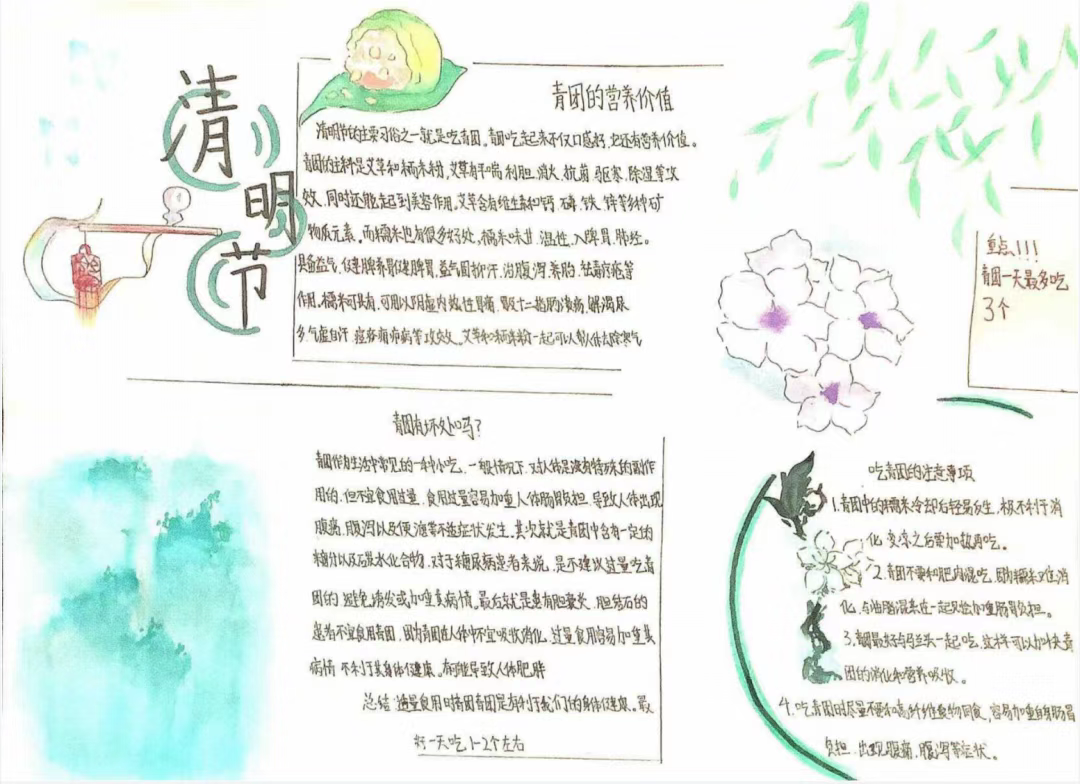 清明节
青团的营养价值
清明节的主要习俗之一就是吃青团。青团吃起来不仅口感好,它还有营养价值。
青团的主料是艾草和糯米粉,艾草有平喘、利胆、消火、抗菌、驱寒、除湿等功
效,同时还能起到美容作用。艾草含有维生素和钙、磷、铁、锌等多种矿
物质元素。而糯米也有很多好处,糯米味甘、温性、入脾、胃、肺经。
具备益气,健脾养胃健脾胃,益气固抑汗,治腹泻、养胎、祛毒疗疮等
作用。糯米可具有,可用以阴虚内热性胃痛、
十二指肠溃疡,解渴尿
多,气虚自汗,痘疹痈疖病等攻效。艾草和糯米粉一起可以帮人体去除寒气
重点!!!
青团一天最多吃
3个
青团有坏处吗?
青团作为生活中常见的一种小吃,一般情况下,对人体是没有特殊的副作
用的,但不宜食用过量,食用过量容易加重人体肠胃负担,导致人体出现
腹痛,腹泻以及便秘等不适症状发生。其次就是青团中含有一定的
糖分以及碳水化合物,对于糖尿病患者来说,是不建议过量吃青
团的,避免诱发或加重其病情。最后就是患有胆囊炎、胆结石的
患者不宜食用青团,因为青团在人体中不宜吸收消化,过量食用容易加重其
病情,不利于其身体健康。有可能导致人体肥胖
总结:适量食用时青团青团是有利于我们的身体健康。最
好一天吃1-2个左右
吃青团的注意事项
1.青团中的糯米冷却后轻易反生,极不利于消
化,变凉之后要加热再吃。
2.青团不要和肥肉混吃,因为糯米难消
化,与油脂混杂在一起只会加重肠胃负担。
3.青团最好与马兰头一起吃,这样可以加快青
团的消化和营养吸收。
4.吃青团时尽量不要和高纤维食物同食,容易加重自身肠胃
负担,出现腹痛,腹泻等症状。